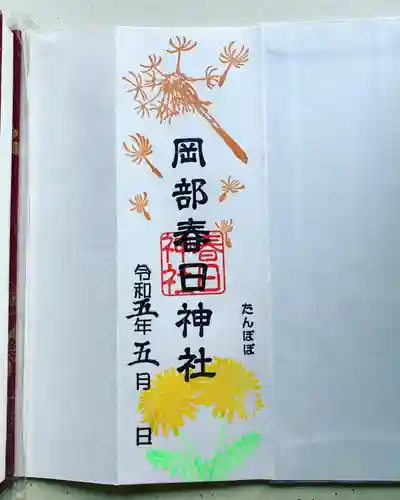 たんぽぽ
岡部春日神社
春日
神社
令和五年五月 日